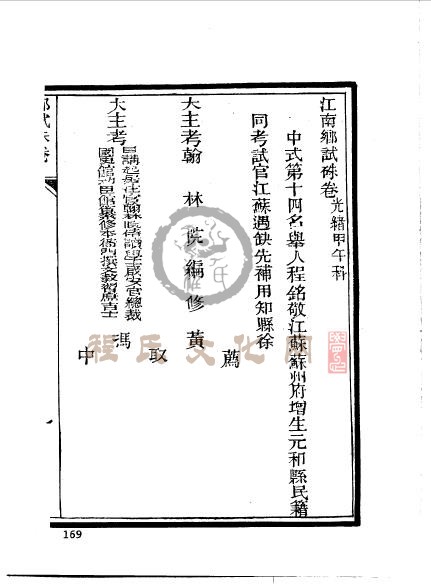 江南鄉試硃卷光緒甲午科
中式第十四名舉人程銘敬江蘇蘇州府增生元和縣民籍
同考試官江蘇遇缺先補用知縣徐
薦
大主考翰林院編修黃
取
大主考日講起居注官翰林院侍讀學士咸安宮總裁
國史館
馮
中
程氏文化網
169